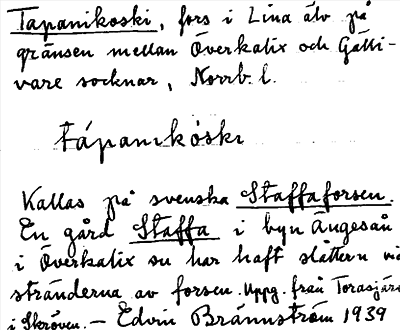 Tapanikoski, fors i Lina älv på
gränsen mellan Överkalix och Gälli-
vare socknar, Norrb. l.
tápanikòski
Kallas på svenska Staffaforsen.
En gård Staffa i byn Ängesån
i Överkalix su har haft slåttern vid
stränderna av forsen. Uppg. från Torasjärvi
i Skröven. – Edvin Brännström 1939